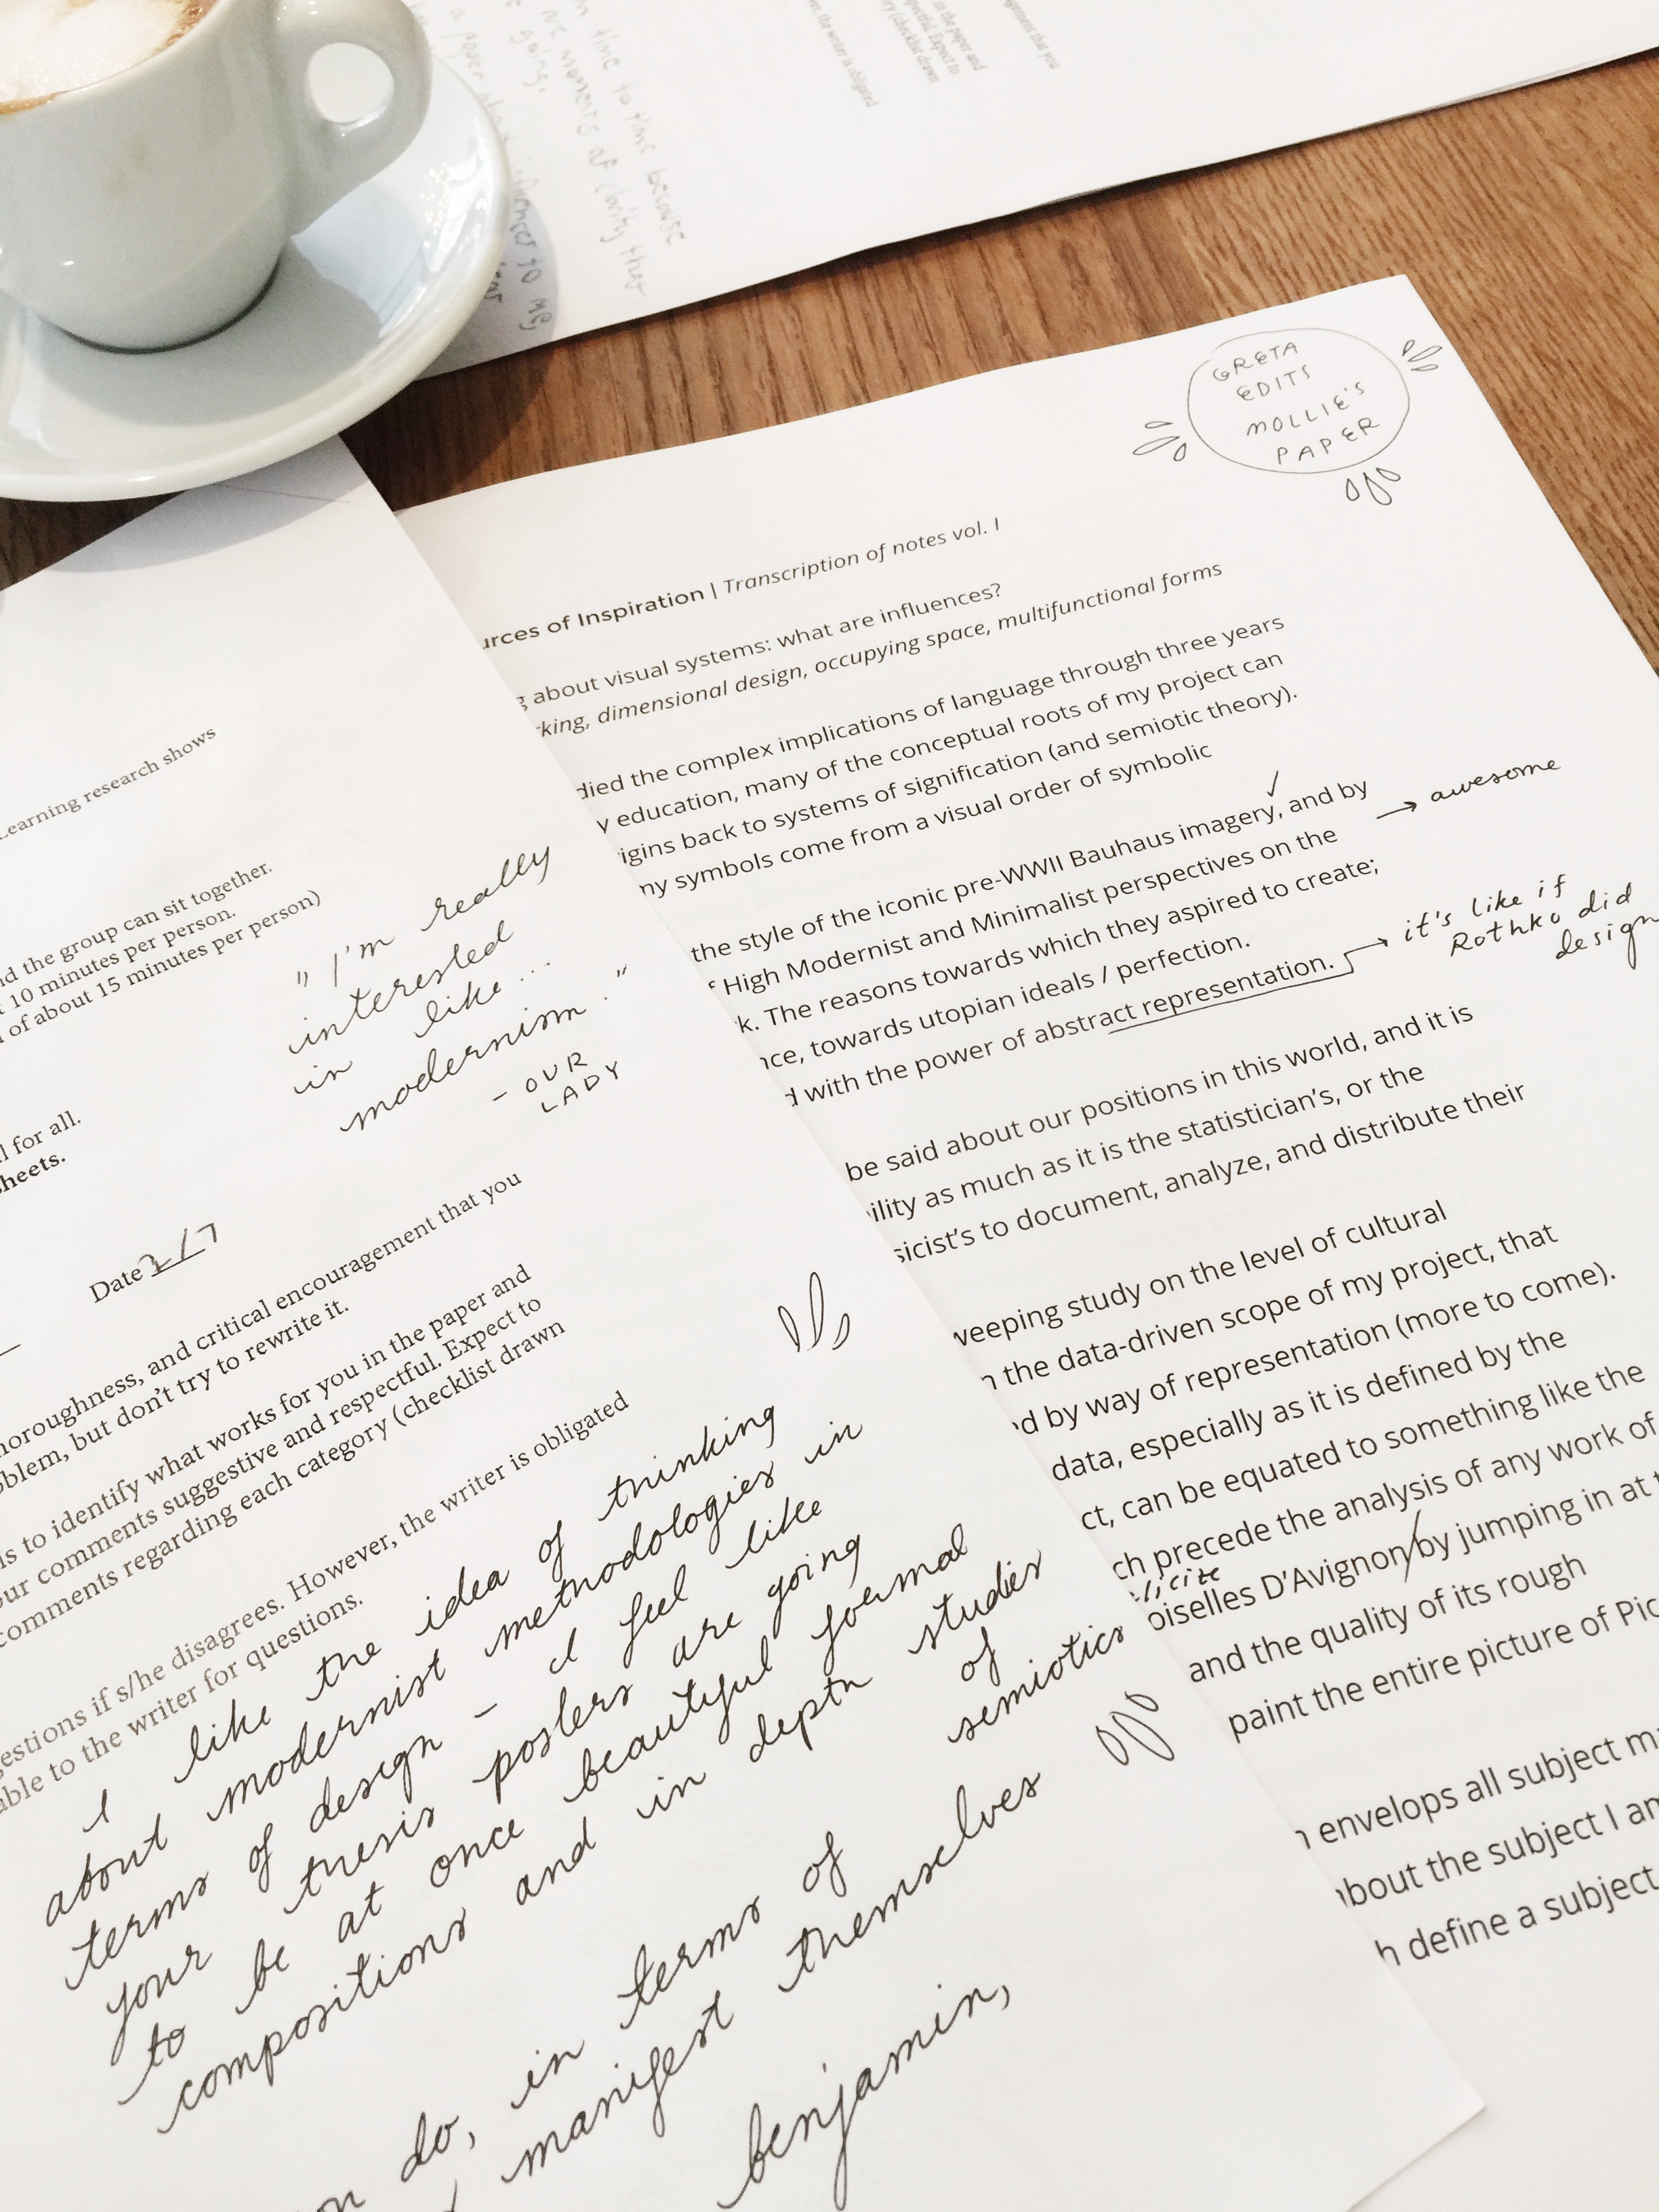 time to time because
are moments of clarity that
going.
to me,
the writer is obligated
in the paper and
Expect to
(checklist drawn
that you
GRETA
EDITS
MOLLIE'S
PAPER
urces of Inspiration | Transcription of notes vol. I
about visual systems: what are influences?
rking, dimensional design, occupying space, multifunctional forms
died the complex implications of language through three years
y education, many of the conceptual roots of my project can
igins back to systems of signification (and semiotic theory).
ny symbols come from a visual order of symbolic
the style of the iconic pre-WWII Bauhaus imagery, and by
→ awesome
High Modernist and Minimalist perspectives on the
k. The reasons towards which they aspired to create;
nce, towards utopian ideals / perfection.
d with the power of abstract representation.
it's like if
Rothko did
design
be said about our positions in this world, and it is
ility as much as it is the statistician's, or the
sicist's to document, analyze, and distribute their
weeping study on the level of cultural
n the data-driven scope of my project, that
d by way of representation (more to come).
data, especially as it is defined by the
ct, can be equated to something like the
ch precede the analysis of any work of
oiselles D'Avignon by jumping in at
and the quality of its rough
paint the entire picture of Pic
n envelops all subject m
bout the subject I am
h define a subject
Learning research shows
nd the group can sit together.
10 minutes per person.
of about 15 minutes per person)
"I'm really
interested
in like...
modernism."
- OUR
LADY
l for all.
sheets.
Date 2/7
horoughness, and critical encouragement that you
oblem, but don't try to rewrite it.
is to identify what works for you in the paper and
our comments suggestive and respectful. Expect to
comments regarding each category (checklist drawn
gestions if s/he disagrees. However, the writer is obligated
able to the writer for questions.
I like the idea of thinking
about modernist methodologies in
terms of design - I feel like
your thesis posters are going
to be at once beautiful formal
compositions and in depth studies
of
semiotics
do, in terms of
manifest themselves
benjamin,